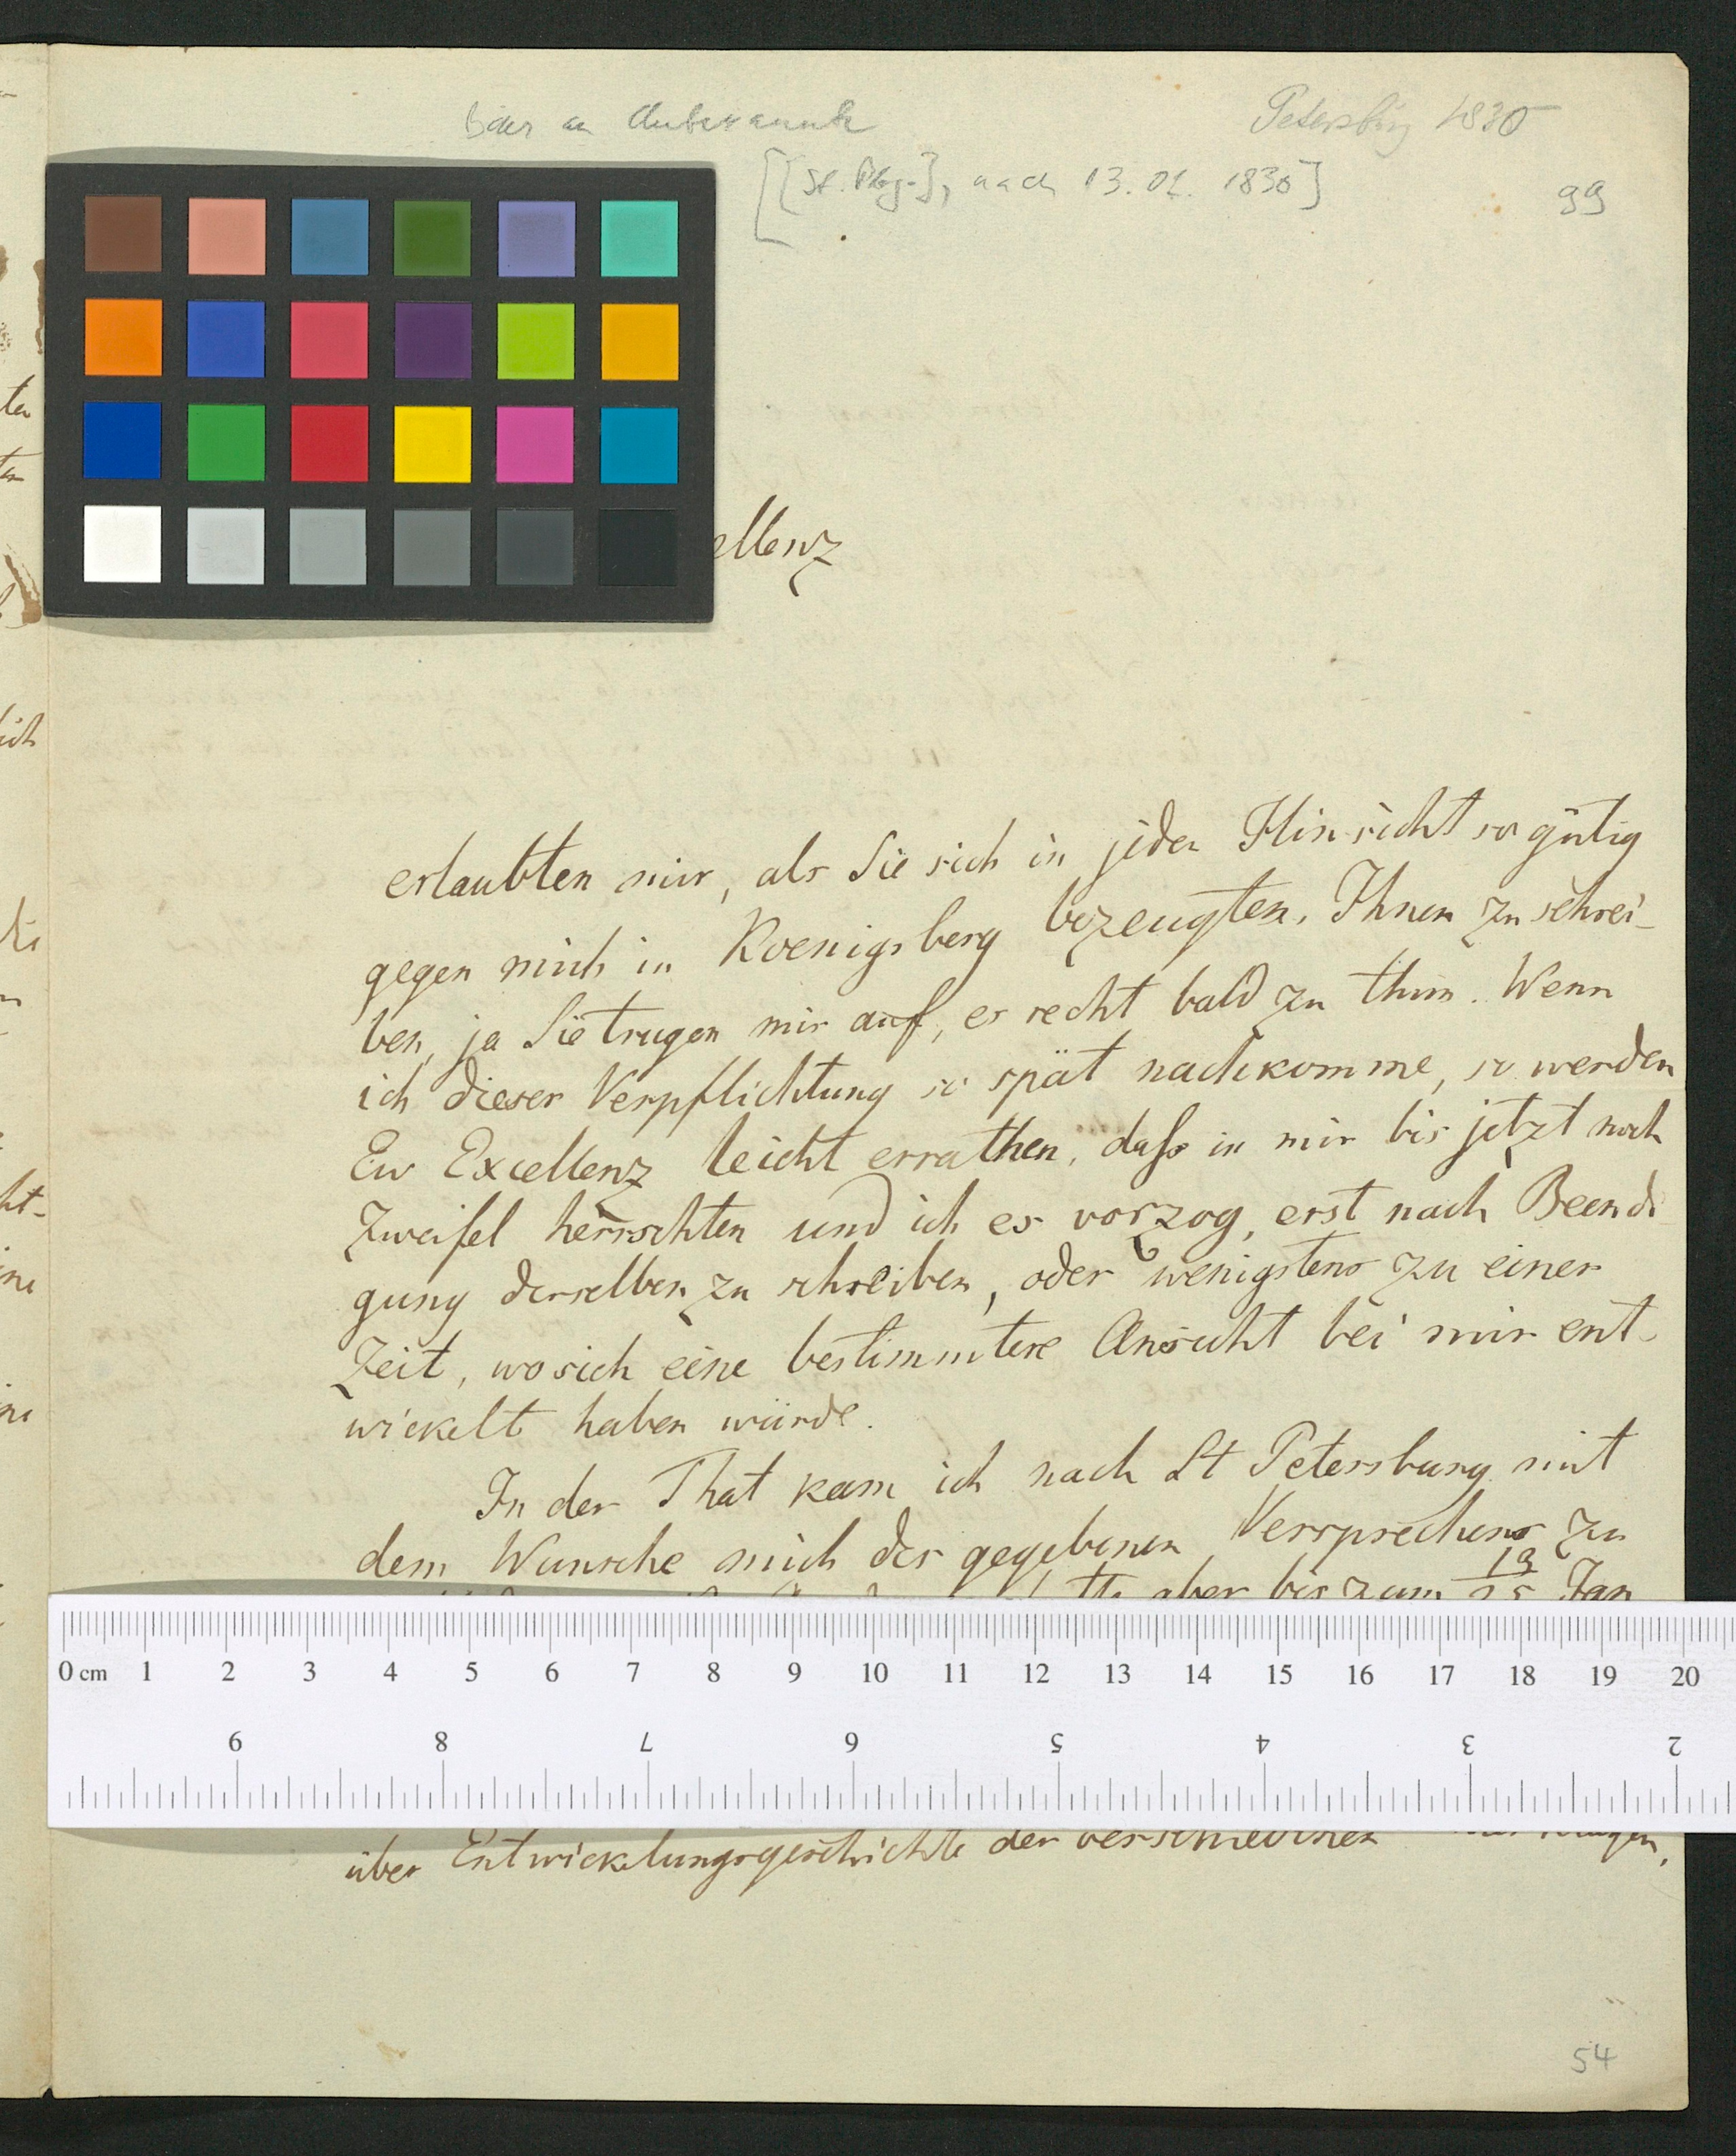 Baer an Unbekannte
Petersburg 1830
[[St. Pbg.], nach 13.01. 1830]
99
ellenz
erlaubten mir, als Sie sich in jeder Hinsicht so gütig
gegen mich in Koenigsberg bezeugten, Ihnen zu schrei-
ben, ja Sie trugen mir auf, es recht bald zu thun. Wenn
ich dieser Verpflichtung so spät nachkomme, so werden
Ew Excellenz leicht errathen, daſs in mir bis jetzt noch
Zweifel herrschten und ich es vorzog, erst nach Beendi
gung derselben zu schreiben, oder wenigstens zu einer
Zeit, wo sich eine bestimmtere Ansicht bei mir ent-
wickelt haben würde.
In der That kam ich nach St Petersburg mit
dem Wunsche mich des gegebenen Versprechens zu
aber bis zum 13/25 Jan
0 cm 1 2 3 4 5 6 7 8 9 10 11 12 13 14 15 16 17 18 19 20
9 8 7 6 5 4 3 2
über Entwickelungsgeschichte der verschiedenen
54